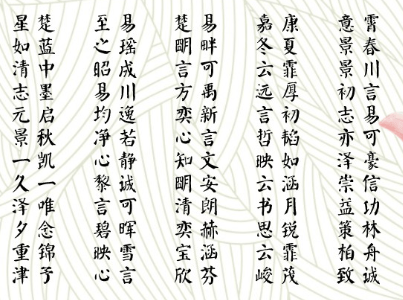 霄春川言易可豪信功林舟诚
意景景初志亦泽崇益策柏致
康夏霏厚初韬如涵月锐霏茂
嘉冬云远言哲映云书思云峻
易畔可禹新言文安朗赫涵芬
楚明言方奕心知明清奕宝欣
易瑶成川逸若静诚可晖雪言
至之昭易均净心黎言碧映心
楚蓝中墨启秋凯一唯念锦予
星如清志元景一久泽夕重津